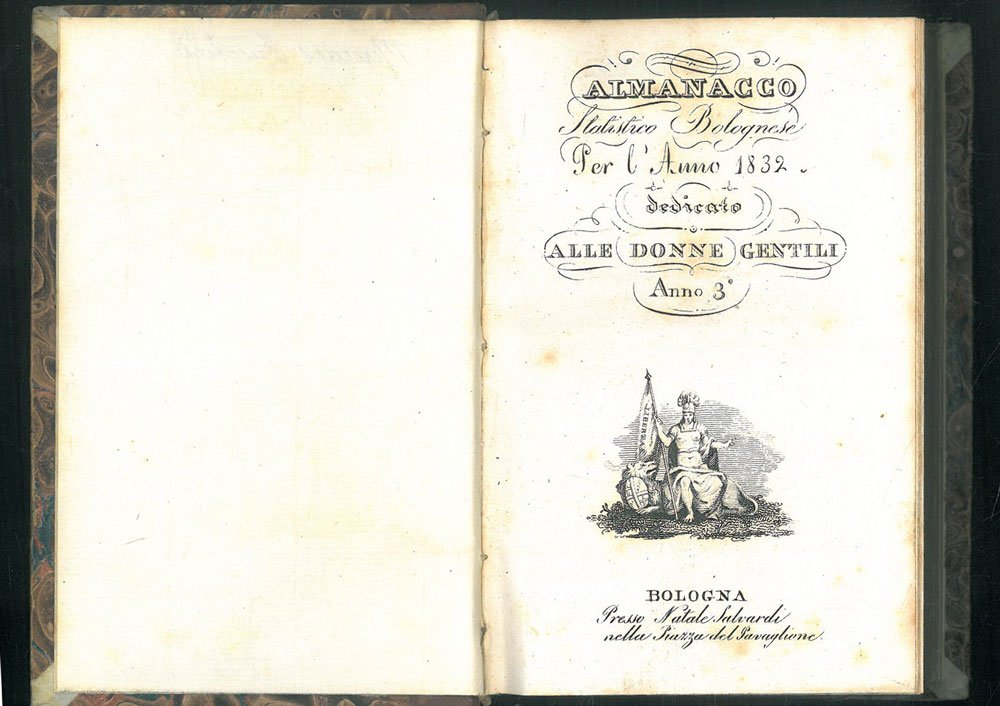 ALMANACCO
Statistico Bolognese
Per l'Anno 1832.
dedicato
ALLE DONNE GENTILI
Anno 3°
LIBERTA
BOLOGNA
Presso Natale Salvardi
nella Piazza del Pavaglione.